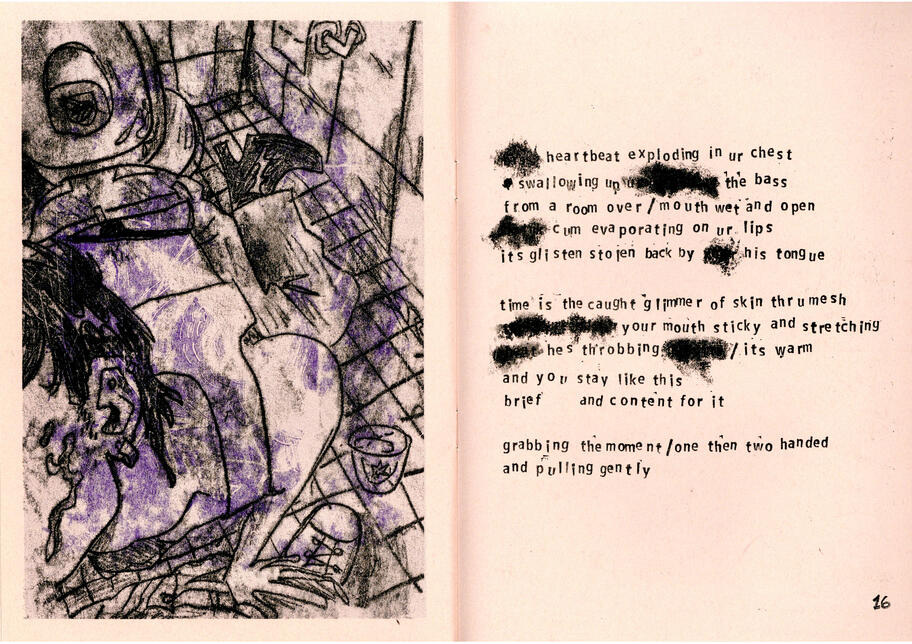 heartbeat exploding in ur chest
swallowing up the bass
from a room over/mouth wet and open
cum evaporating on ur lips
its glisten stolen back by his tongue
time is the caught glimmer of skin thru mesh
your mouth sticky and stretching
hes throbbing /its warm
and you stay like this
brief and content for it
grabbing the moment/one then two handed
and pulling gently
16